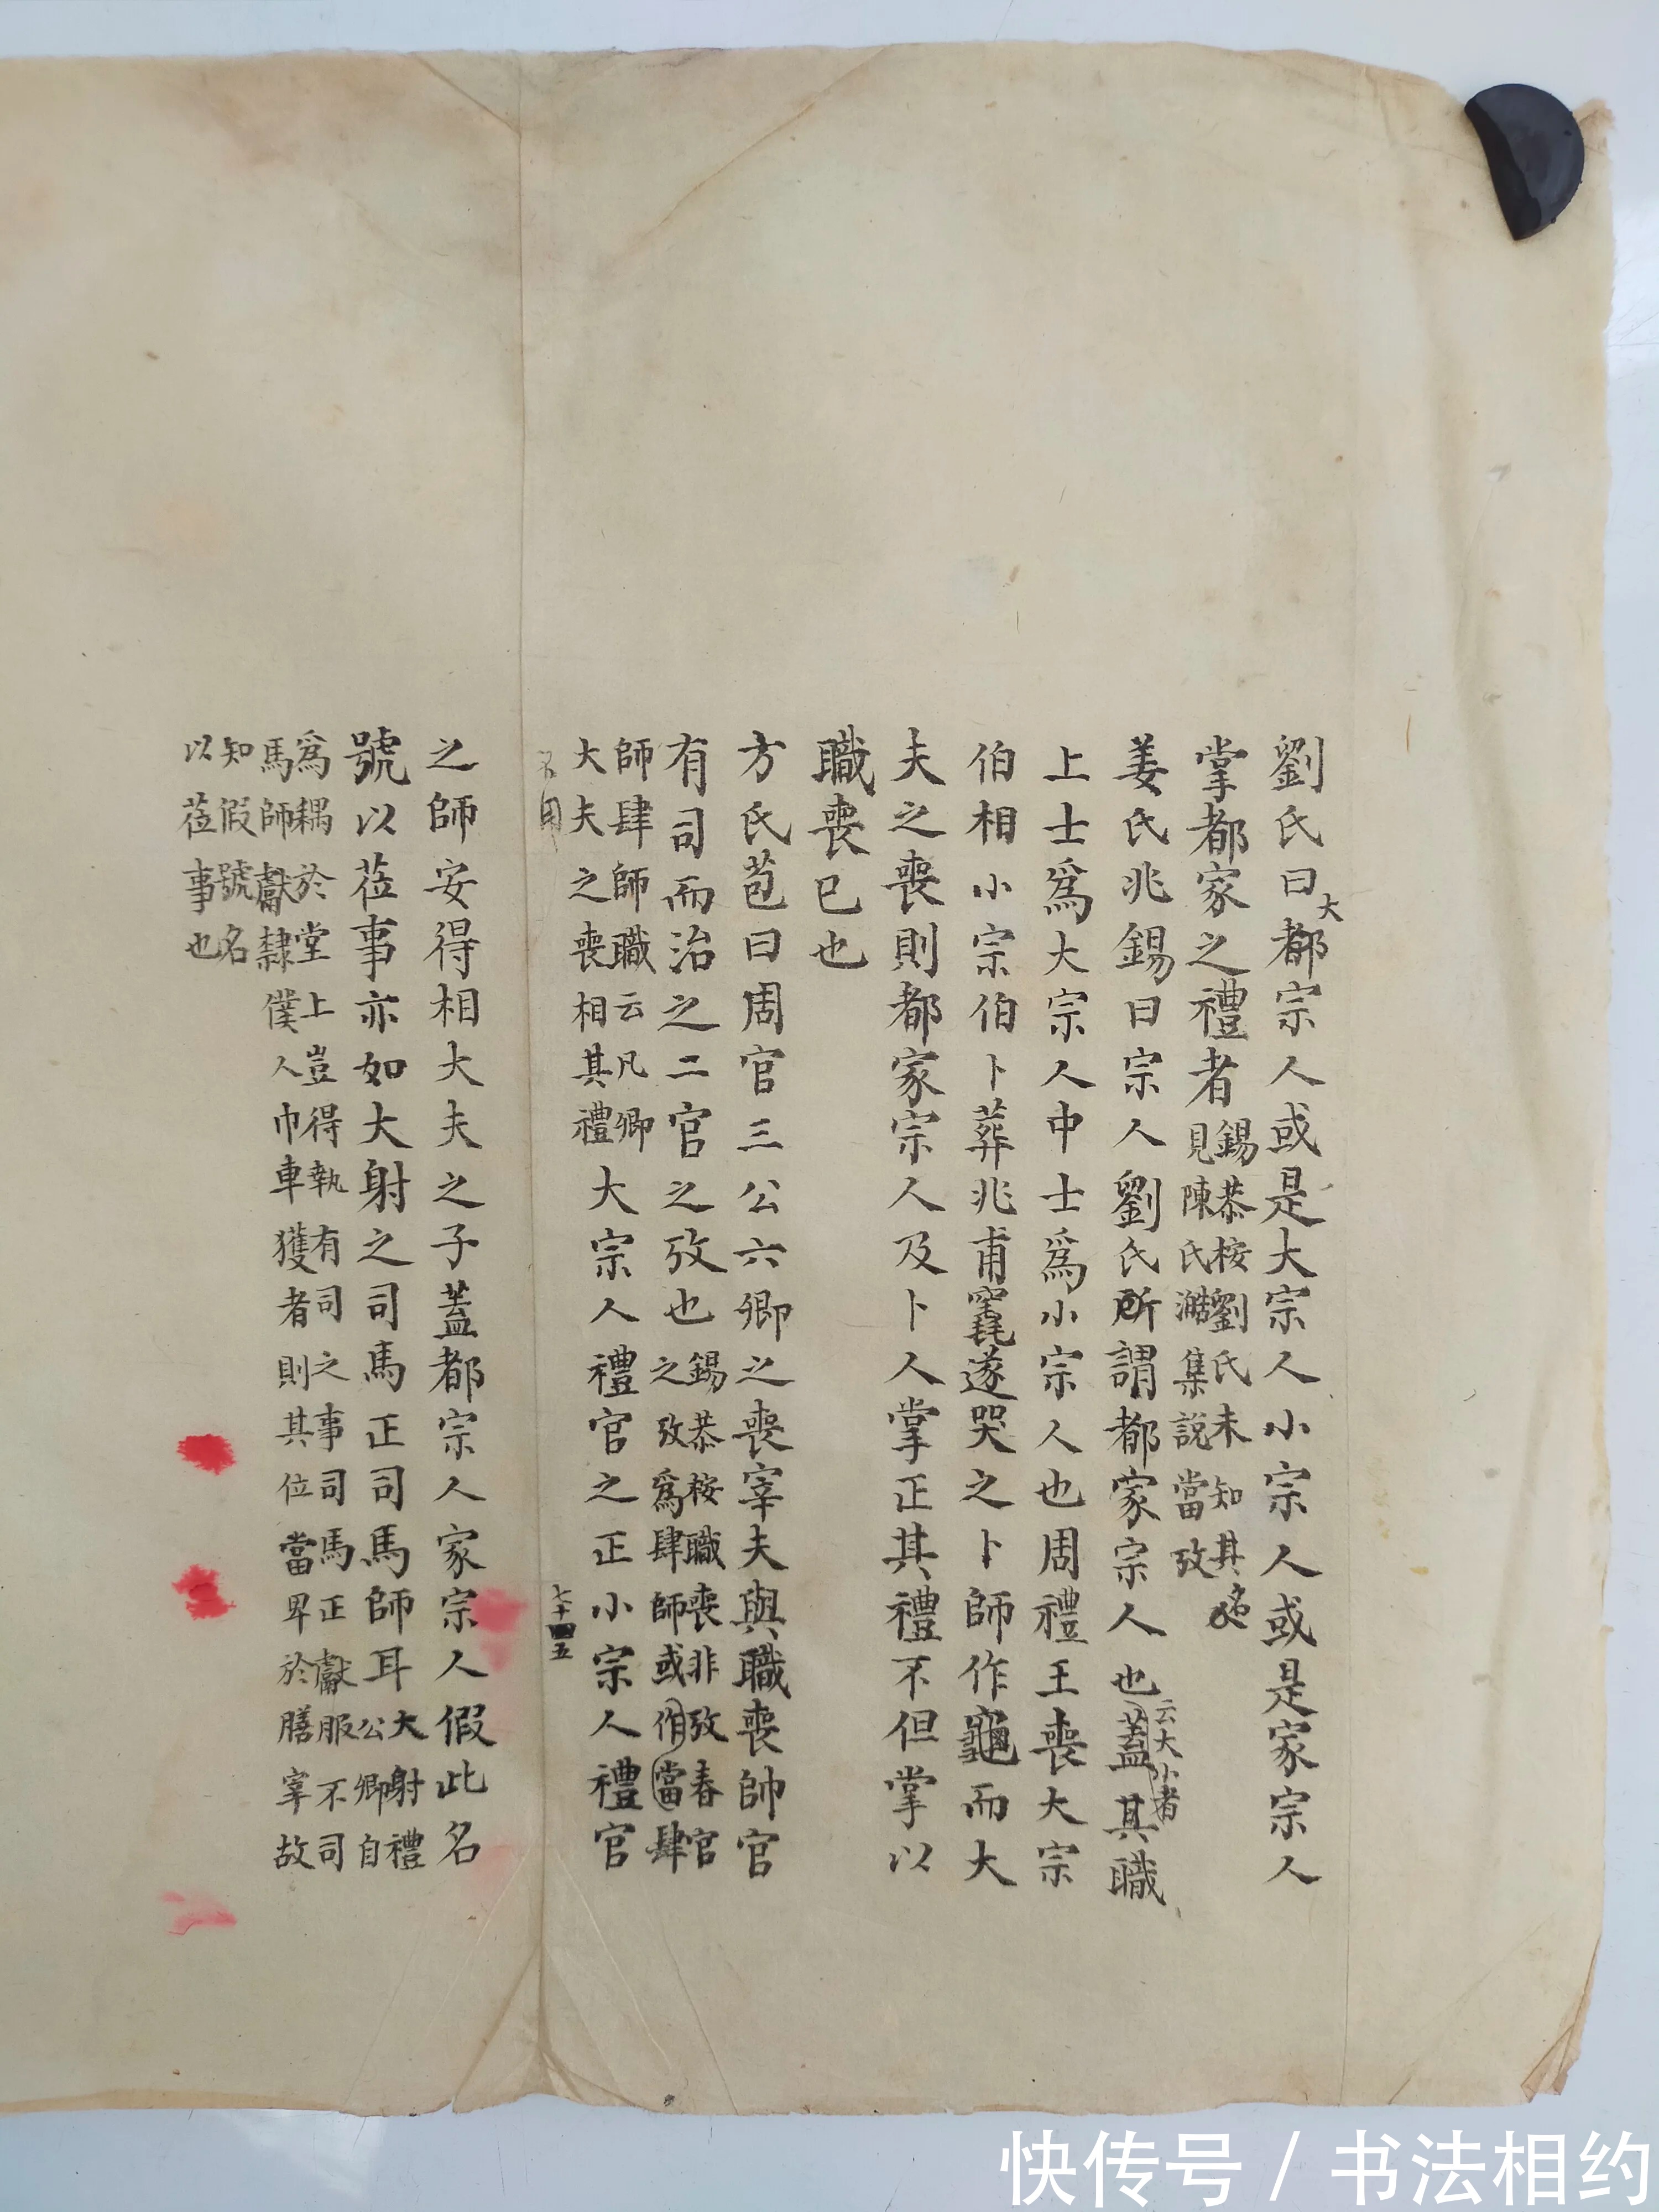 劉氏曰大都宗人或是大宗人小宗人或是家宗人
掌都家之禮者
錫恭桉劉氏未知其名
見陳氏澔集說當攷
姜氏兆錫曰宗人劉氏所謂都家宗人也蓋其職
云大小者
上士爲大宗人中士爲小宗人也周禮王喪大宗
伯相小宗伯卜葬兆甫竁遂哭之卜師作龜而大
夫之喪則都家宗人及卜人掌正其禮不但掌以
職喪已也
方氏苞曰周官三公六卿之喪宰夫與職喪帥官
有司而治之二官之攷也
錫恭桉職喪非攷春官
之攷爲肆師或作當肆
師肆師職云凡卿
大夫之喪相其禮
大宗人禮官之正小宗人禮官
七十四五
之師安得相大夫之子蓋都宗人家宗人假此名
號以莅事亦如大射之司馬正司馬師耳
大射禮
公卿自
爲耦於堂上豈得執有司之事司馬正獻服不司
馬師獻隸僕人巾車獲者則其位當卑於膳宰故
知假號名
以莅事也
快传号 / 书法相约